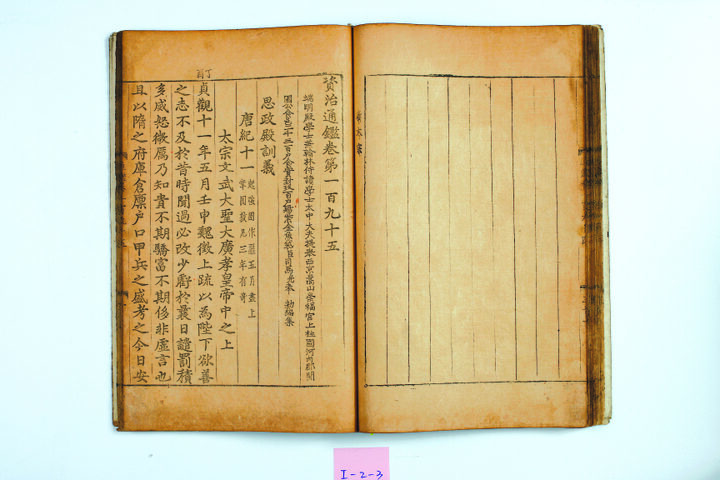 資治通鑑卷第一百九十五
端明殿學士兼翰林侍讀學士太中大夫提擧西京嵩山崇福宮上柱國河內郡開
國公食邑二千六百戶食實封
司馬光奉 勑編集
思政殿訓義
唐紀十一
起強圉作噩五月盡上
章困敦凡三年有奇
太宗文武大聖大廣孝皇帝中之上
丁酉
貞觀十一年五月壬申魏徵上疏以為陛下欲善
之志不及於昔時聞過必改少虧於曩日譴罰積
多威怒微厲乃知貴不期驕富不期侈非虛言也
且以隋之府庫倉廩戶口甲兵之盛考之今日安
I-2-3